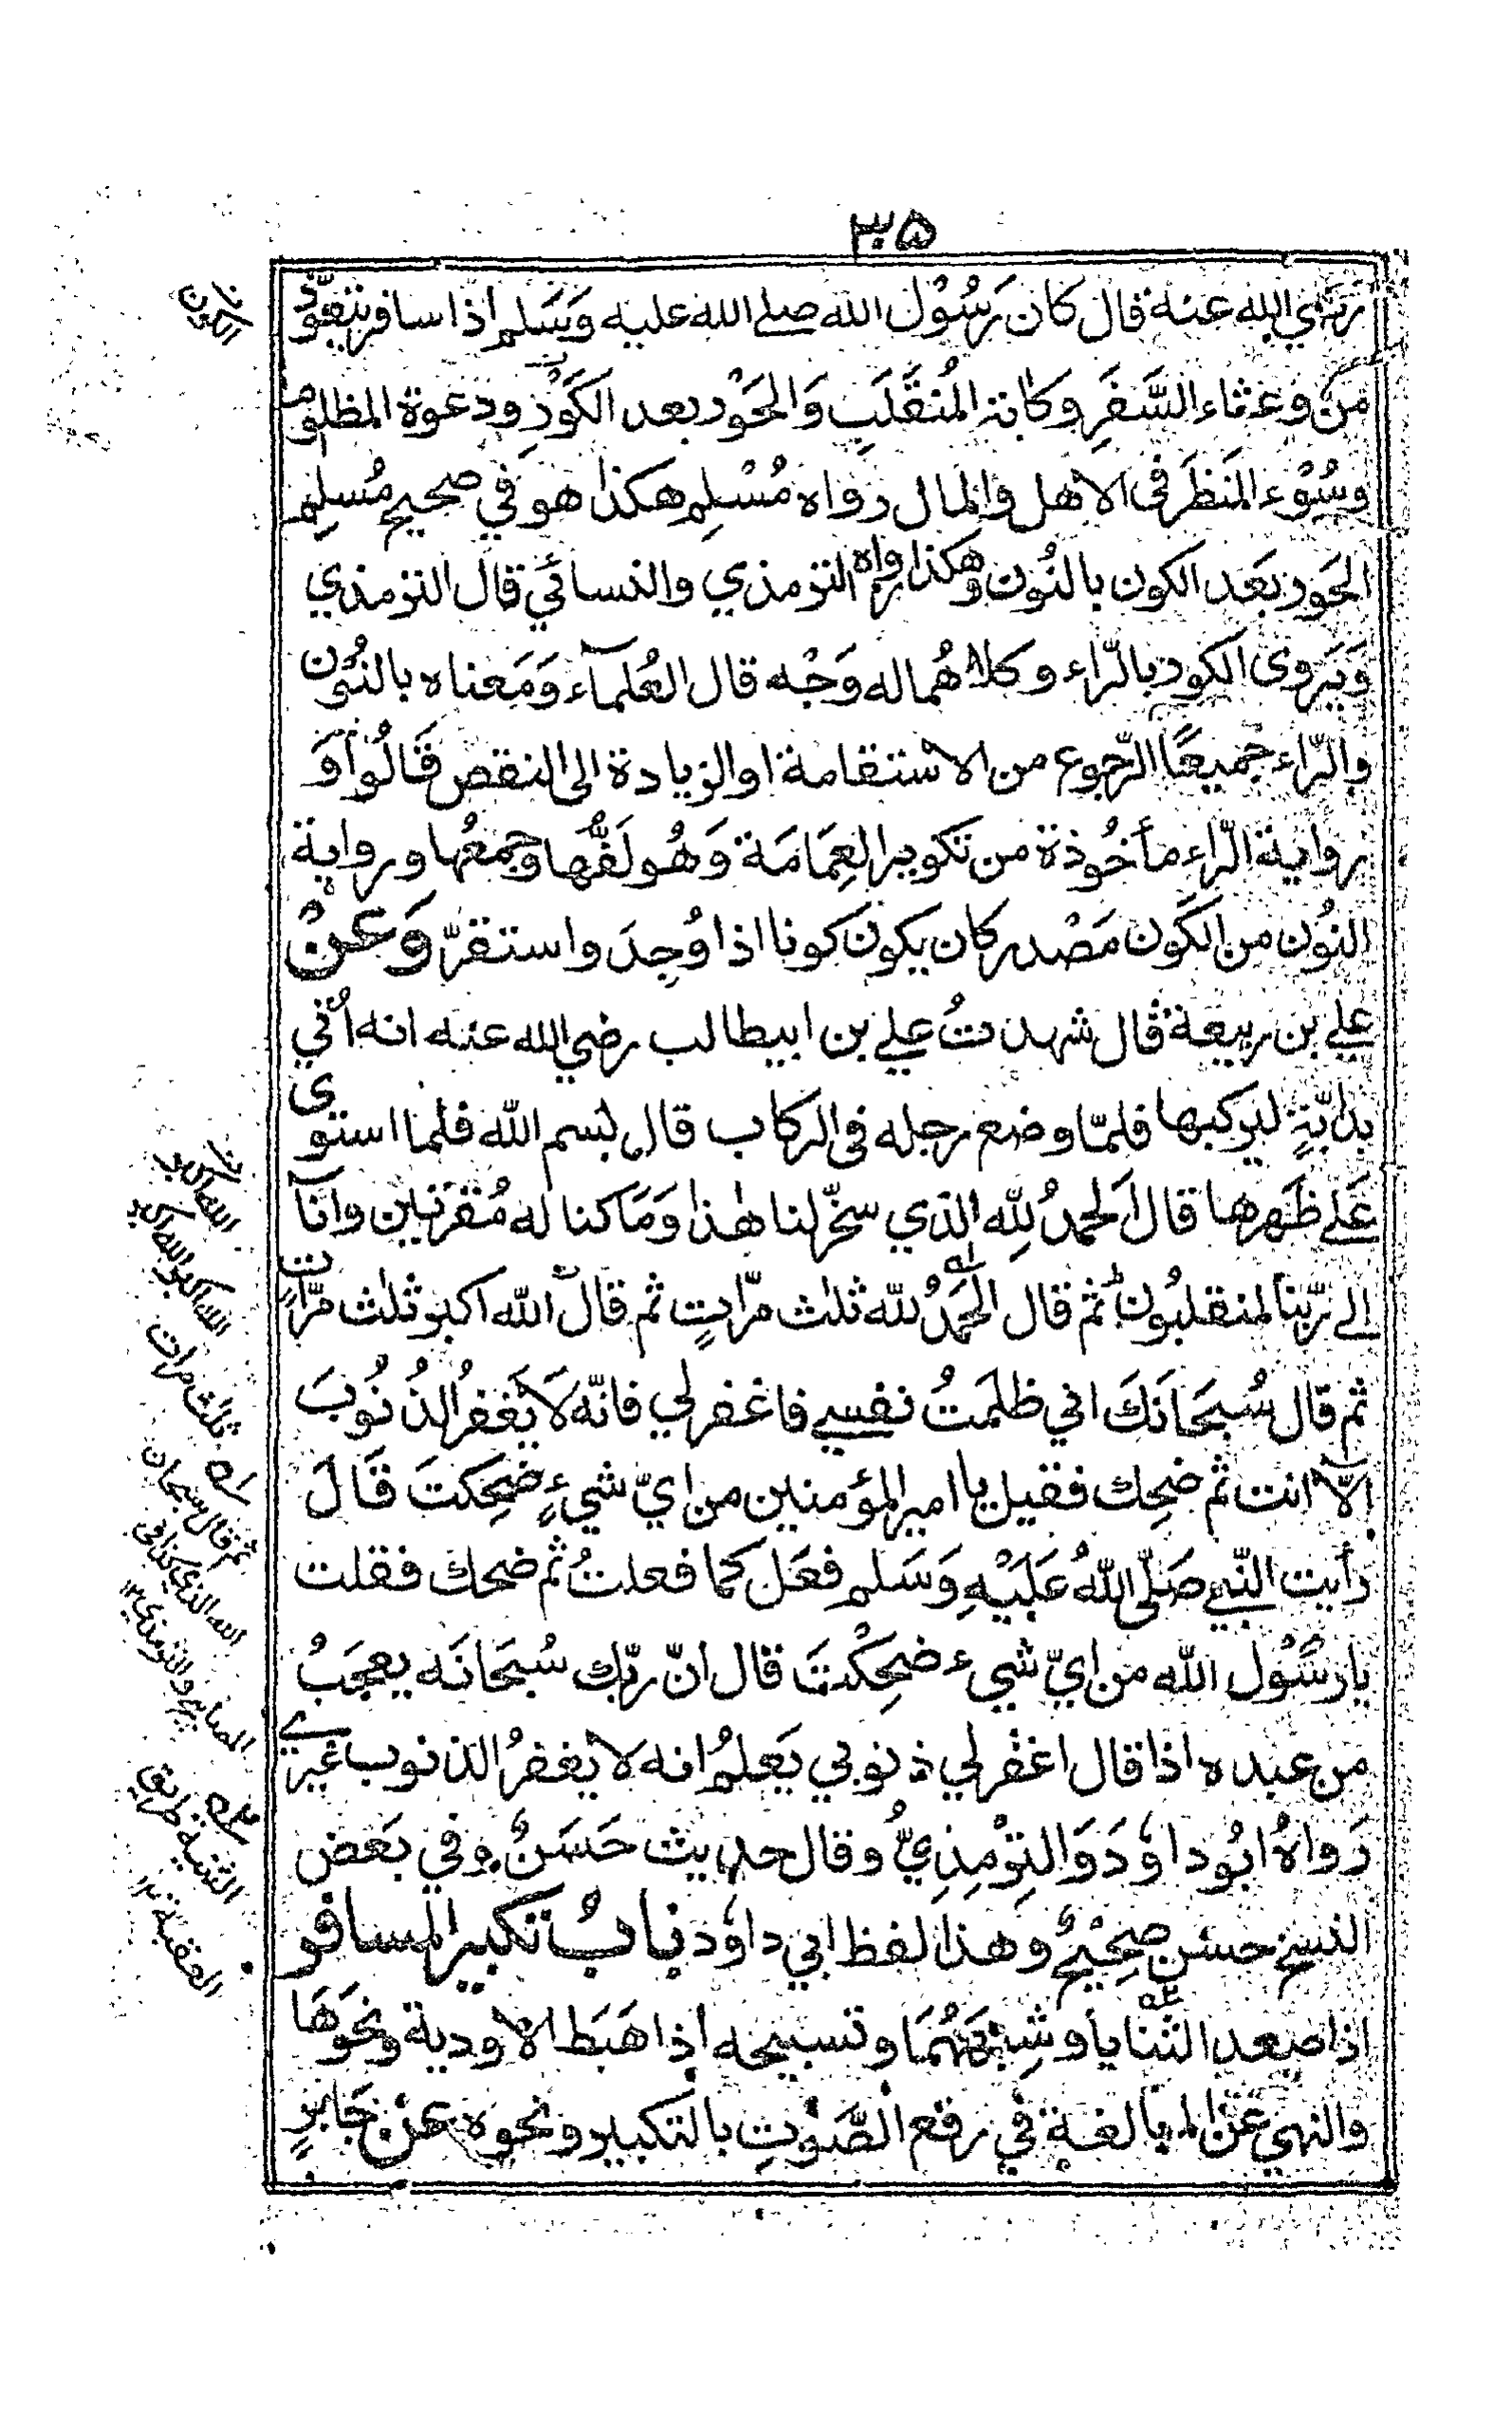 ٣٠٥
رضي الله عنه قال كان رَسُوْل الله صلے الله عليه وَسَلم اذا سافر يتعوّذ
من وعثاء السَّفَرِ وكابة المُنقَلَبِ وَالحَوْر بعد الكَوْرِ ودعوة المظلوم
وسُوْء المَنظَر فى الاهل والمال رواه مُسْلِم هكذا هو في صحيح مُسلِم
الحَور بَعد الكون بالنُون وهكذا رواه الترمذي والنسائي قال الترمذي
وَيَروى الكور بالرّاء وكلاهُما له وَجْه قال العُلمآء وَمَعناه بالنُون
والرّاء جَميعًا الرّجوع من الاستقامة او الزيادة الى النقص قَالُوا وَ
رواية الرّاء مأخُوذة من تكوير العِمَامَة وَهُو لَفُّها وجمعُها ورواية
النُون من الكَون مَصْدر كان يكون كونا اذا وُجِدَ واستقرّ وَعَنْ
علے بن ربيعة قال شهدتُ علے بن ابيطالب رضي الله عنه انه اُتي
بدابّةٍ ليركبها فلمّا وضع رجله فى الركاب قال بسم الله فلما استوى
عَلے ظَهرها قال الحمدُ لِلّه الذي سخّر لنا هٰذا وَمَا كنا له مُقرَنين وانآ
الے ربّنا لمنقلبُون ثم قال الحَمدُ لله ثلاث مرّاتٍ ثم قال الله اكبر ثلاث مرّاتٍ
ثم قال سُبحَانَكَ اني ظلَمتُ نفسے فاغفر لي فانّه لَا يَغفرُ الذُنُوبَ
الّا انت ثم ضحِك فقيل يا امير المؤمنين من ايّ شيءٍ ضحِكتَ قَالَ
رأيت النّبے صَلّى اللهُ عَلَيْهِ وَسَلم فعَل كما فعلتُ ثم ضحك فقلت
يا رسُول الله من ايّ شيء ضحِكْتَ قال انّ ربّك سُبحَانَه يعجَبُ
من عبده اذا قال اغفر لي ذنوبي يَعلمُ انه لا يغفرُ الذنوب غيرے
رَواهُ ابُو داوٗدَ وَالتِرْمِذِيُّ وقال حديث حَسَنٌ وفي بَعض
النسخ حسَن صحِيْحٌ وهذا لفظ ابي داوٗد بابُ تكبير المسافر
اذا صعد الثنايا وشِبْهَهُمَا وتسبيحه اذا هَبَط الاودية ونحوَهَا
والنهي عن المبالغة في رفع الصَّوْتِ بالتكبير ونحوه عَنْ جَابرٍ
الكون
الله اكبر
الله اكبر الله اكبر
ثلث مرات
ثم قال سبحان
الله الذي
والترمذي ١٢
الثنية طريق
العقبة ١٢